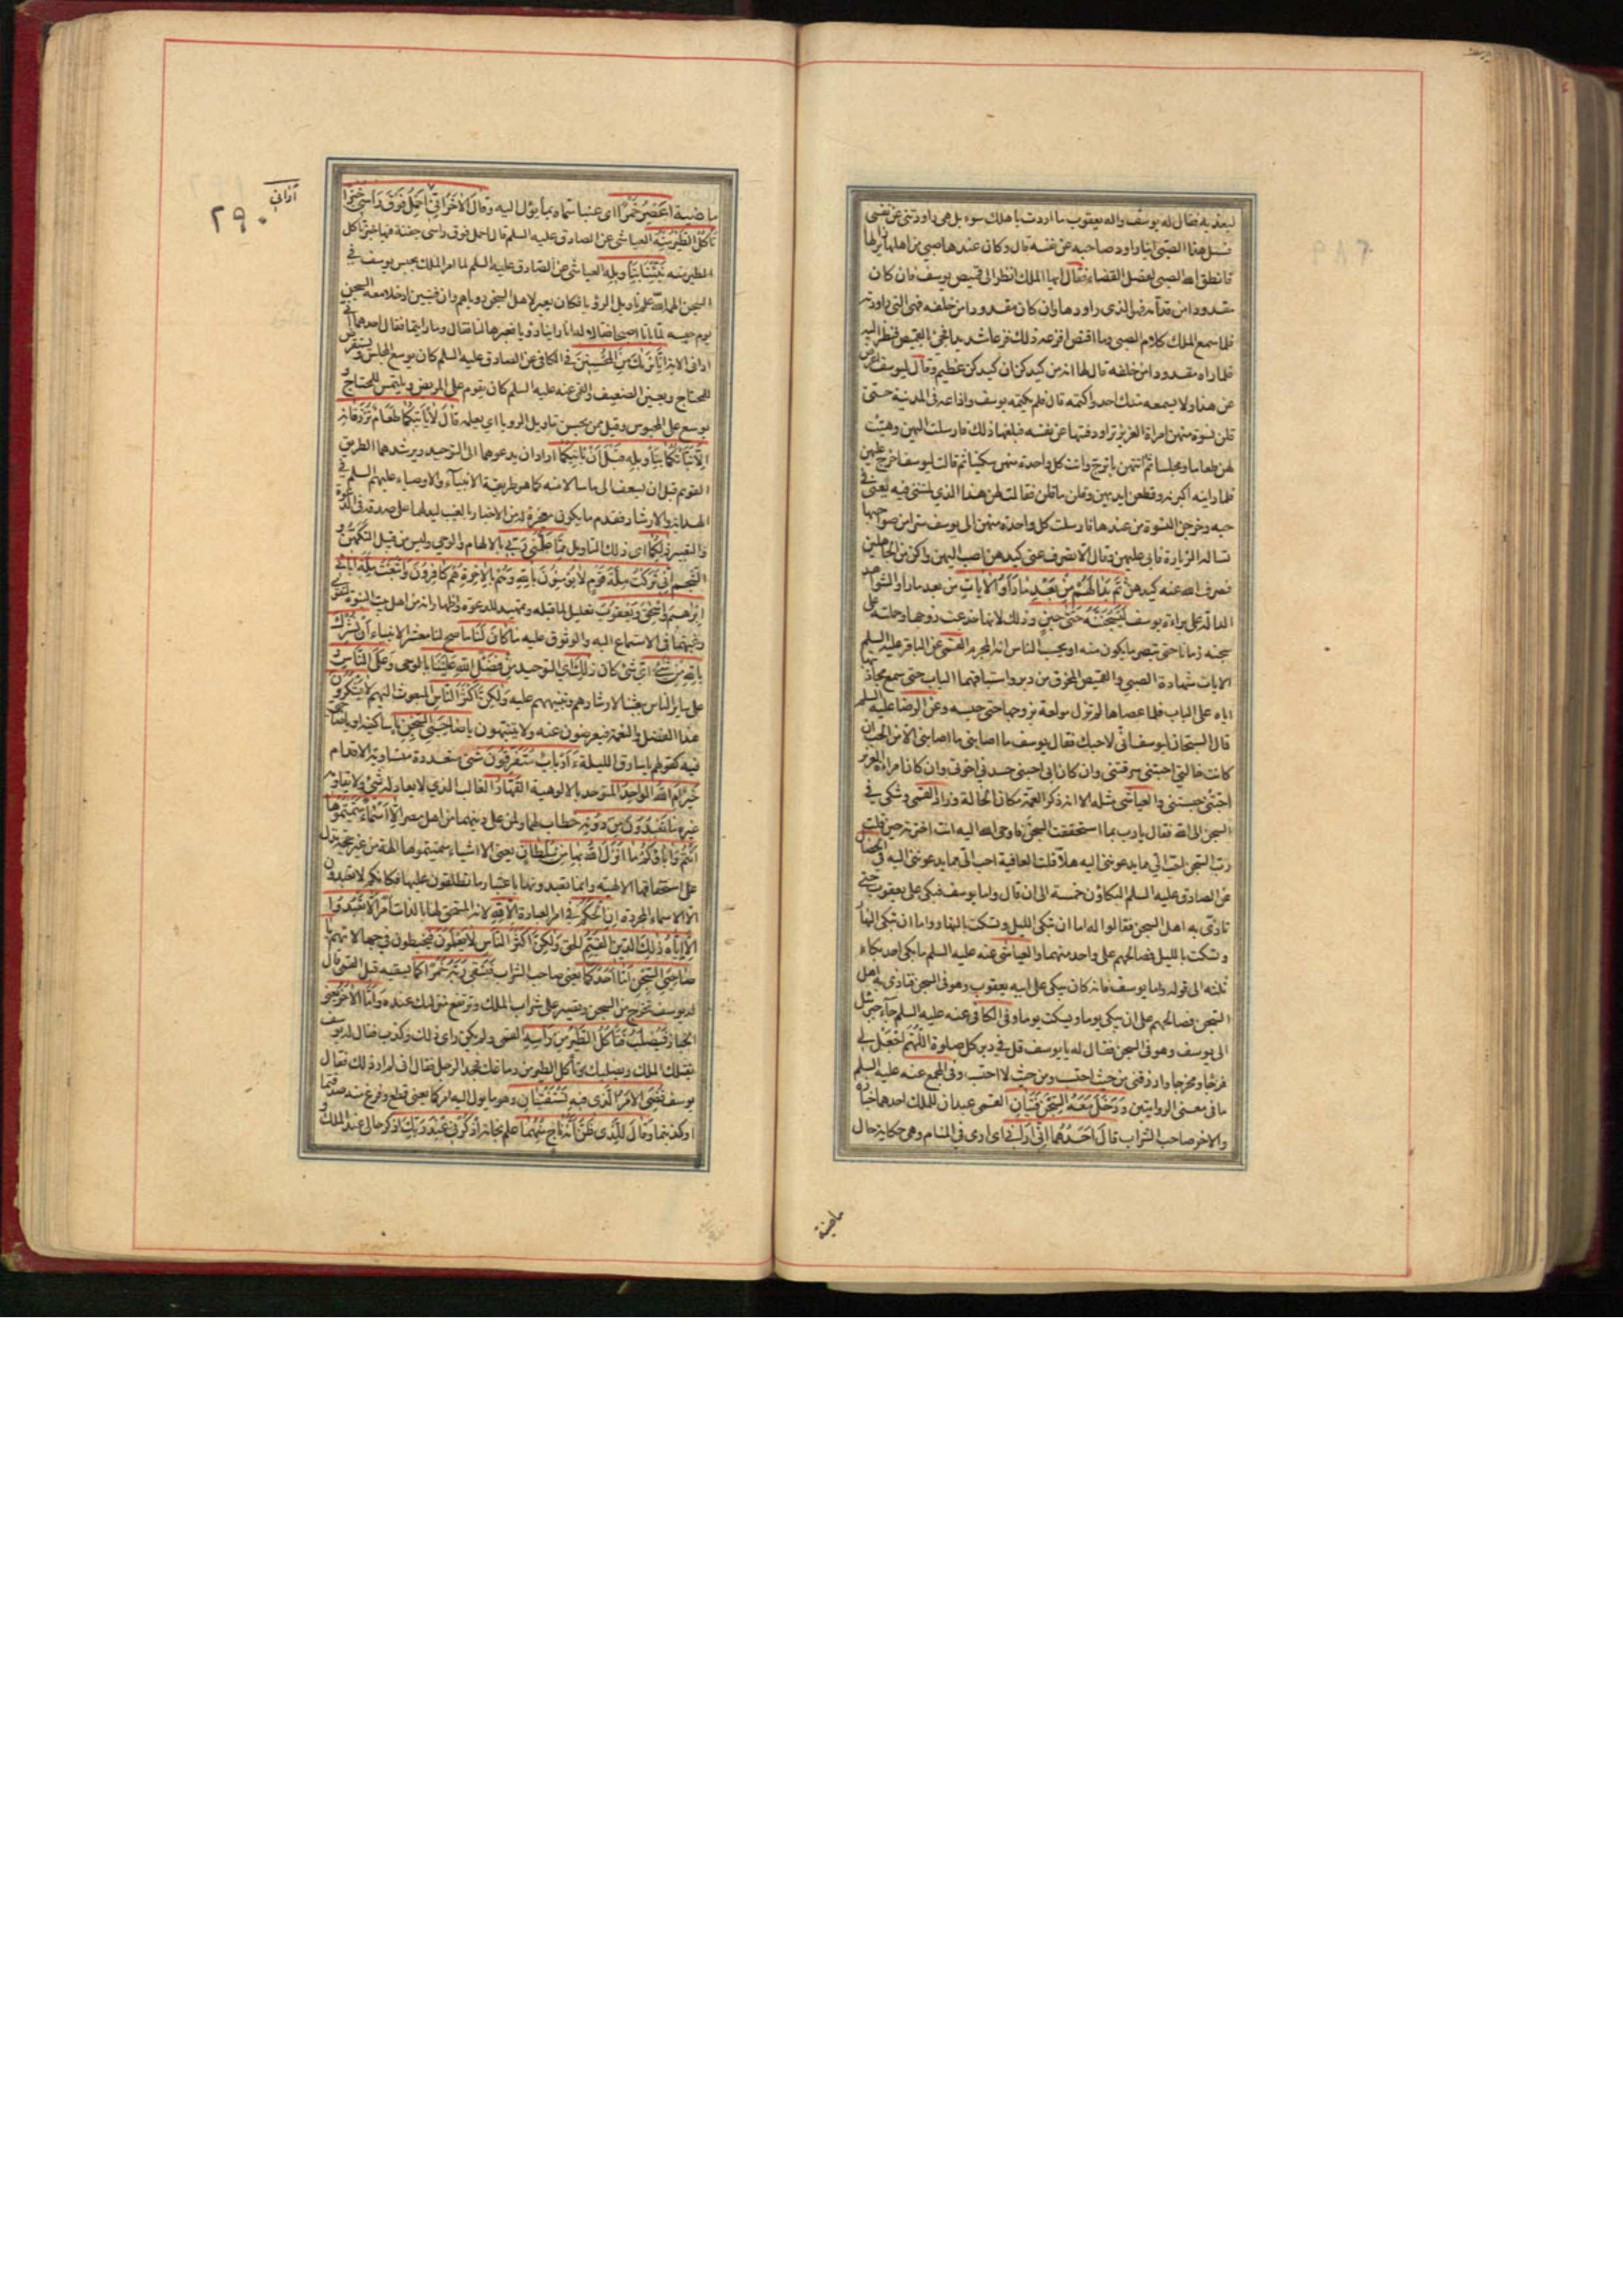 ليعذبه فقال له يوسف واله يعقوب ما اردت باهلك سوء بل هي راودتني عن نفسي
فسل هذا الصبي اينا راود صاحبه عن نفسه قال وكان عندها صبي من اهلها زائر لها
فانطق الله الصبي لفصل القضاء فقال ايها الملك انظر الى قميص يوسف فان كان
مقدودا من قدامه فهو الذي راودها وان كان مقدودا من خلفه فهي التي راودته
فلما سمع الملك كلام الصبي وما اقتص افزعه ذلك فزعا شديدا فجئ بالقميص فنظر اليه
فلما راه مقدودا من خلفه قال لها انه من كيدكن ان كيدكن عظيم وقال ليوسف اعرض
عن هذا ولا يسمعه منك احد واكتمه قال فلم يكتمه يوسف واذاعه في المدينة حتى
قلن نسوة منهن امراة العزيز تراود فتيها عن نفسه فبلغها ذلك فارسلت اليهن وهيئت
لهن طعاما ومجلسا ثم اتتهن باترج واتت كل واحدة منهن سكينا ثم قالت ليوسف اخرج عليهن
فلما راينه اكبرنه وقطعن ايديهن وقلن ما قلن فقالت لهن هذا الذي لمتنني فيه يعني في
حبه وخرجن النسوة من عندها فارسلت كل واحدة منهن الى يوسف سرا من صواحبها
تساله الزيارة فابى عليهن وقال الا تصرف عني كيدهن اصب اليهن واكن من الجاهلين
فصرف الله عنه كيدهن ثُمَّ بَدَا لَهُمْ مِنْ بَعْدِ مَا رَأَوُا الْآيَاتِ من بعد ما راوا الشواهد
الدالة على براءة يوسف لَيَسْجُنُنَّهُ حَتَّى حِينٍ وذلك لانها خدعت زوجها وحملته على
سجنه زمانا حتى تبصر ما يكون منه او يحسب الناس انه المجرم القمي عن الباقر عليه السلم
الايات شهادة الصبي والقميص المخرق من دبر واستباقهما الباب حتى سمع مجاذبتها
اياه على الباب فلما عصاها لم تزل مولعة بزوجها حتى حبسه وعن الرضا عليه السلم
قال السجان ليوسف اني لاحبك فقال يوسف ما اصابني ما اصابني الا من الحب ان
كانت خالتي احبتني سرقتني وان كان ابي احبني حسدني اخوتي وان كان امراة العزيز
احبتني حبستني والعياشي مثله الا انه ذكر العمة مكان الخالة وزاد القمي وشكى في
السجن الى الله فقال يا رب بما استحققت السجن فاوحى الله اليه انت اخترته حين قلت
رب السجن احب الي مما يدعونني اليه هلا قلت العافية احب الي مما يدعونني اليه في الخصال
عن الصادق عليه السلم البكاؤن خمسة الى ان قال واما يوسف فبكى على يعقوب حتى
تاذى به اهل السجن فقالوا له اما ان تبكي الليل وتسكت بالنهار واما ان تبكي النهار
وتسكت بالليل فصالحهم على واحد منهما والعياشي عنه عليه السلم ما بكى احد بكاء
ثلثة الى قوله واما يوسف فانه كان يبكي على ابيه يعقوب وهو في السجن فتاذى به اهل
السجن فصالحهم على ان يبكي يوما ويسكت يوما وفي الكافي عنه عليه السلم جاء جبرئيل
الى يوسف وهو في السجن فقال له يا يوسف قل في دبر كل صلوة اللهم اجعل لي
فرجا ومخرجا وارزقني من حيث احتسب ومن حيث لا احتسب وفي المجمع عنه عليه السلم
ما في معنى الروايتين وَدَخَلَ مَعَهُ السِّجْنَ فَتَيَانِ القمي عبدان للملك احدهما خبازه
والاخر صاحب الشراب قَالَ أَحَدُهُمَا إِنِّي أَرَانِي اي ارى في المنام وهي حكاية حال
ماضية
اراني
٢٩٠
ماضية أَعْصِرُ خَمْرًا اي عنبا سماه بما يؤل اليه وَقَالَ الْآخَرُ إِنِّي أَحْمِلُ فَوْقَ رَأْسِي خُبْزًا
تَأْكُلُ الطَّيْرُ مِنْهُ العياشي عن الصادق عليه السلم قال احمل فوق راسي جفنة فيها خبز تاكل
الطير منه نَبِّئْنَا بِتَأْوِيلِهِ العياشي عن الصادق عليه السلم لما امر الملك بحبس يوسف في
السجن الهمه الله علم تاويل الرؤيا فكان يعبر لاهل السجن رؤياهم وان فتيين ادخلا معه السجن
يوم حبسه لما باتا اصبحا فقالا له انا راينا رؤيا فعبرها لنا فقال وما رايتما فقال احدهما اني
اراني الاية إِنَّا نَرَاكَ مِنَ الْمُحْسِنِينَ في الكافي عن الصادق عليه السلم كان يوسع المجلس ويستقرض
للمحتاج ويعين الضعيف والقمي عنه عليه السلم كان يقوم على المريض ويلتمس للمحتاج و
يوسع على المحبوس وقيل ممن يحسن تاويل الرويا اي يعلمه قَالَ لَا يَأْتِيكُمَا طَعَامٌ تُرْزَقَانِهِ
إِلَّا نَبَّأْتُكُمَا بِتَأْوِيلِهِ قَبْلَ أَنْ يَأْتِيَكُمَا اراد ان يدعوهما الى التوحيد ويرشدهما الطريق
القويم قبل ان يسعف الى ما سالا منه كما هو طريقة الانبياء والاوصياء عليهم السلم في
الهداية والارشاد فقدم ما يكون معجزة له من الاخبار بالغيب ليدلهما على صدقه في الدعوة
والتعبير ذَلِكُمَا اي ذلك التاويل مِمَّا عَلَّمَنِي رَبِّي بالالهام والوحي وليس من قبيل التكهن و
التنجيم إِنِّي تَرَكْتُ مِلَّةَ قَوْمٍ لَا يُؤْمِنُونَ بِاللَّهِ وَهُمْ بِالْآخِرَةِ هُمْ كَافِرُونَ وَاتَّبَعْتُ مِلَّةَ آبَائِي
إِبْرَاهِيمَ وَإِسْحَقَ وَيَعْقُوبَ تعليل لما قبله وتمهيد للدعوة واظهار انه من اهل بيت النبوة لتقوى
رغبتهما في الاستماع اليه والوثوق عليه مَا كَانَ لَنَا ما صح لنا معشر الانبياء أَنْ نُشْرِكَ
بِاللَّهِ مِنْ شَيْءٍ اي شئ كان ذَلِكَ اي التوحيد مِنْ فَضْلِ اللَّهِ عَلَيْنَا بالوحي وَعَلَى النَّاسِ و
على ساير الناس ببعثنا لارشادهم وتنبيههم عليه وَلَكِنَّ أَكْثَرَ النَّاسِ المبعوث اليهم لَا يَشْكُرُونَ
هذا الفضل والنعمة فيعرضون عنه ولا ينتبهون يَا صَاحِبَيِ السِّجْنِ يا ساكنيه او يا صاحبي
فيه كقولهم يا سارق الليلة أَأَرْبَابٌ مُتَفَرِّقُونَ شتى متعددة متساوية الاقدام
خَيْرٌ أَمِ اللَّهُ الْوَاحِدُ المتوحد بالالوهية الْقَهَّارُ الغالب الذي لا يعادله شئ ولا يقاومه
غيره مَا تَعْبُدُونَ مِنْ دُونِهِ خطاب لهما ولمن على دينهما من اهل مصر إِلَّا أَسْمَاءً سَمَّيْتُمُوهَا
أَنْتُمْ وَآبَاؤُكُمْ مَا أَنْزَلَ اللَّهُ بِهَا مِنْ سُلْطَانٍ يعني الا اشياء سميتموها الهة من غير حجة تدل
على استحقاقها الالهية وانما تعبدونها باعتبار ما تطلقون عليها فكانكم لا تعبدون
الا الاسماء المجردة إِنِ الْحُكْمُ في امر العبادة إِلَّا لِلَّهِ لانه المستحق لها بالذات أَمَرَ أَلَّا تَعْبُدُوا
إِلَّا إِيَّاهُ ذَلِكَ الدِّينُ الْقَيِّمُ الحق وَلَكِنَّ أَكْثَرَ النَّاسِ لَا يَعْلَمُونَ فيخبطون في جهالاتهم يَا
صَاحِبَيِ السِّجْنِ أَمَّا أَحَدُكُمَا يعني صاحب الشراب فَيَسْقِي رَبَّهُ خَمْرًا كما يسقيه قبل القمي قال
له يوسف تخرج من السجن وتصير على شراب الملك وترتفع منزلتك عنده وَأَمَّا الْآخَرُ يعني
الخباز فَيُصْلَبُ فَتَأْكُلُ الطَّيْرُ مِنْ رَأْسِهِ القمي ولم يكن راى ذلك وكذب فقال له يوسف
يقتلك الملك ويصلبك وتاكل الطير من دماغك فجحد الرجل فقال اني لم ار ذلك فقال
يوسف قُضِيَ الْأَمْرُ الَّذِي فِيهِ تَسْتَفْتِيَانِ وهو ما يؤل اليه امركما يعني قطع وفرغ منه صدقتما
او كذبتما وَقَالَ لِلَّذِي ظَنَّ أَنَّهُ نَاجٍ مِنْهُمَا علم نجاته اذْكُرْنِي عِنْدَ رَبِّكَ اذكر حالي عند الملك و